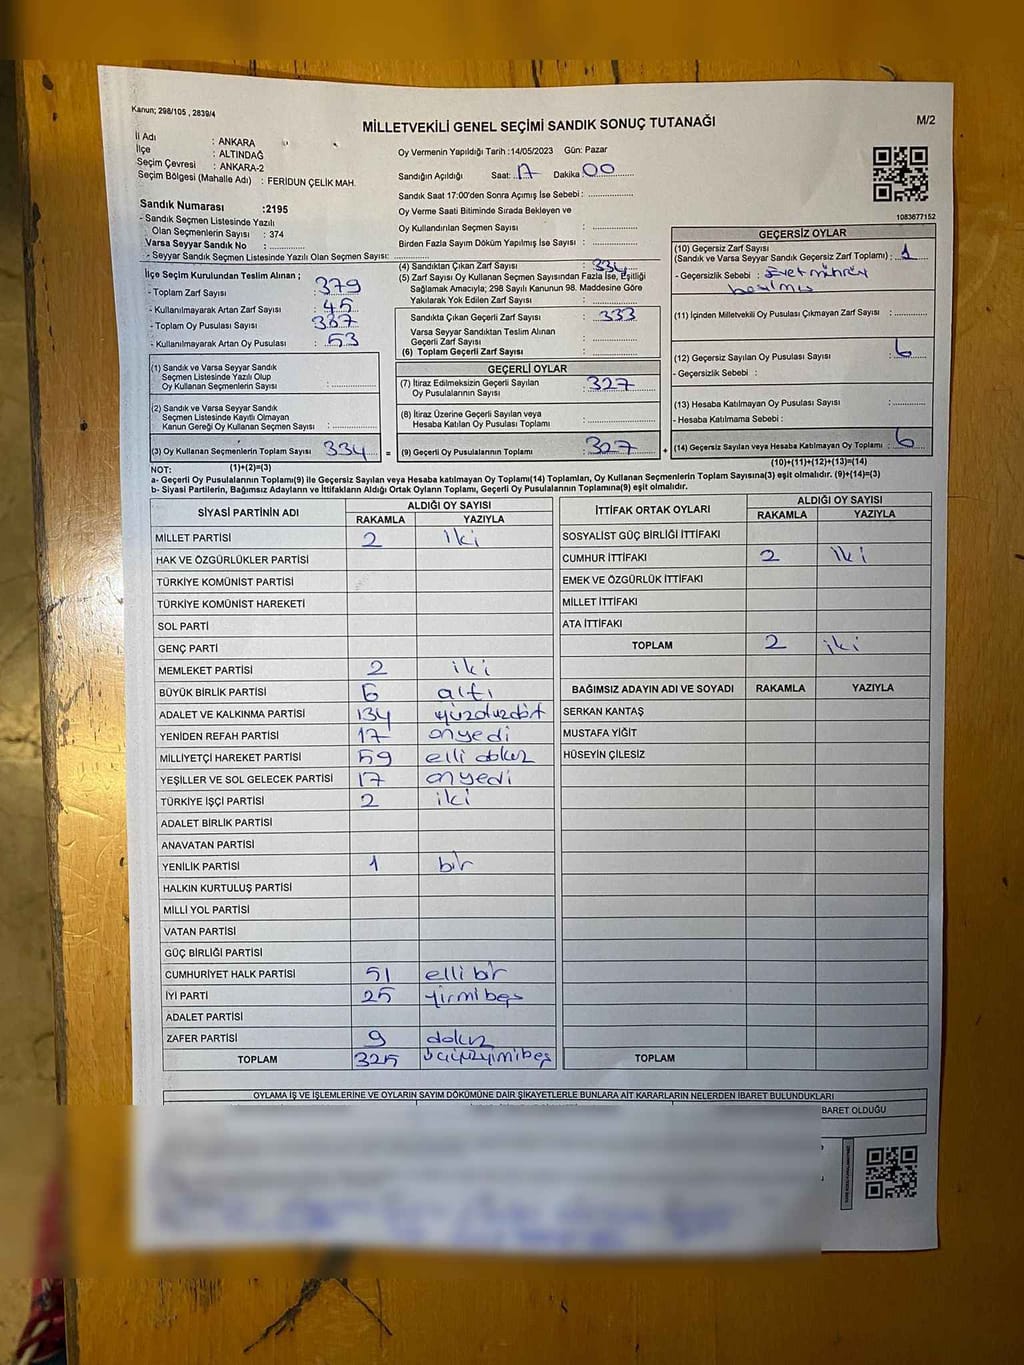 Kanun; 298/105 , 2839/4
MİLLETVEKİLİ GENEL SEÇİMİ SANDIK SONUÇ TUTANAĞI
M/2
İl Adı : ANKARA
İlçe : ALTINDAĞ
Seçim Çevresi : ANKARA-2
Seçim Bölgesi (Mahalle Adı) : FERİDUN ÇELİK MAH.
Oy Vermenin Yapıldığı Tarih :14/05/2023 Gün: Pazar
Sandığın Açıldığı Saat: 17 Dakika 00
Sandık Saat 17:00'den Sonra Açımış İse Sebebi :
Oy Verme Saati Bitiminde Sırada Bekleyen ve
Oy Kullandırılan Seçmen Sayısı :
Birden Fazla Sayım Döküm Yapılmış İse Sayısı :
1083677152
Sandık Numarası :2195
- Sandık Seçmen Listesinde Yazılı
Olan Seçmenlerin Sayısı : 374
Varsa Seyyar Sandık No :
- Seyyar Sandık Seçmen Listesinde Yazılı Olan Seçmen Sayısı:
İlçe Seçim Kurulundan Teslim Alınan ;
- Toplam Zarf Sayısı : 379
- Kullanılmayarak Artan Zarf Sayısı : 45
- Toplam Oy Pusulası Sayısı : 387
- Kullanılmayarak Artan Oy Pusulası : 53
(1) Sandık ve Varsa Seyyar Sandık
Seçmen Listesinde Yazılı Olup
Oy Kullanan Seçmenlerin Sayısı :
(2) Sandık ve Varsa Seyyar Sandık
Seçmen Listesinde Kayıtlı Olmayan
Kanun Gereği Oy Kullanan Seçmen Sayısı :
(3) Oy Kullanan Seçmenlerin Toplam Sayısı : 334 =
(1)+(2)=(3)
(4) Sandıktan Çıkan Zarf Sayısı : 334
(5) Zarf Sayısı Oy Kullanan Seçmen Sayısından Fazla İse, Eşitliği
Sağlamak Amacıyla; 298 Sayılı Kanunun 98. Maddesine Göre
Yakılarak Yok Edilen Zarf Sayısı :
Sandıkta Çıkan Geçerli Zarf Sayısı : 333
Varsa Seyyar Sandıktan Teslim Alınan
Geçerli Zarf Sayısı :
(6) Toplam Geçerli Zarf Sayısı :
GEÇERLİ OYLAR
(7) İtiraz Edilmeksizin Geçerli Sayılan
Oy Pusulalarının Sayısı : 327
(8) İtiraz Üzerine Geçerli Sayılan veya
Hesaba Katılan Oy Pusulası Toplamı :
(9) Geçerli Oy Pusulalarının Toplamı : 327 +
GEÇERSİZ OYLAR
(10) Geçersiz Zarf Sayısı
(Sandık ve Varsa Seyyar Sandık Geçersiz Zarf Toplamı) : 1
- Geçersizlik Sebebi : Evet mührü
basılmış
(11) İçinden Milletvekili Oy Pusulası Çıkmayan Zarf Sayısı :
(12) Geçersiz Sayılan Oy Pusulası Sayısı : 6
- Geçersizlik Sebebi :
(13) Hesaba Katılmayan Oy Pusulası Sayısı :
- Hesaba Katılmama Sebebi :
(14) Geçersiz Sayılan veya Hesaba Katılmayan Oy Toplamı : 6
(10)+(11)+(12)+(13)=(14)
NOT:
a- Geçerli Oy Pusulalarının Toplamı(9) ile Geçersiz Sayılan veya Hesaba katılmayan Oy Toplamı(14) Toplamları, Oy Kullanan Seçmenlerin Toplam Sayısına(3) eşit olmalıdır. (9)+(14)=(3)
b- Siyasi Partilerin, Bağımsız Adayların ve İttifakların Aldığı Ortak Oyların Toplamı, Geçerli Oy Pusulalarının Toplamına(9) eşit olmalıdır.
SİYASİ PARTİNİN ADI ALDIĞI OY SAYISI
RAKAMLA YAZIYLA
MİLLET PARTİSİ 2 iki
HAK VE ÖZGÜRLÜKLER PARTİSİ
TÜRKİYE KOMÜNİST PARTİSİ
TÜRKİYE KOMÜNİST HAREKETİ
SOL PARTİ
GENÇ PARTİ
MEMLEKET PARTİSİ 2 iki
BÜYÜK BİRLİK PARTİSİ 6 altı
ADALET VE KALKINMA PARTİSİ 134 yüzotuzdört
YENİDEN REFAH PARTİSİ 17 onyedi
MİLLİYETÇİ HAREKET PARTİSİ 59 elli dokuz
YEŞİLLER VE SOL GELECEK PARTİSİ 17 onyedi
TÜRKİYE İŞÇİ PARTİSİ 2 iki
ADALET BİRLİK PARTİSİ
ANAVATAN PARTİSİ
YENİLİK PARTİSİ 1 bir
HALKIN KURTULUŞ PARTİSİ
MİLLİ YOL PARTİSİ
VATAN PARTİSİ
GÜÇ BİRLİĞİ PARTİSİ
CUMHURİYET HALK PARTİSİ 51 elli bir
İYİ PARTİ 25 yirmi beş
ADALET PARTİSİ
ZAFER PARTİSİ 9 dokuz
TOPLAM 325 üçyüzyirmibeş
İTTİFAK ORTAK OYLARI ALDIĞI OY SAYISI
RAKAMLA YAZIYLA
SOSYALİST GÜÇ BİRLİĞİ İTTİFAKI
CUMHUR İTTİFAKI 2 iki
EMEK VE ÖZGÜRLÜK İTTİFAKI
MİLLET İTTİFAKI
ATA İTTİFAKI
TOPLAM 2 iki
BAĞIMSIZ ADAYIN ADI VE SOYADI RAKAMLA YAZIYLA
SERKAN KANTAŞ
MUSTAFA YİĞİT
HÜSEYİN ÇİLESİZ
TOPLAM
OYLAMA İŞ VE İŞLEMLERİNE VE OYLARIN SAYIM DÖKÜMÜNE DAİR ŞİKAYETLERLE BUNLARA AİT KARARLARIN NELERDEN İBARET BULUNDUKLARI
BARET OLDUĞU